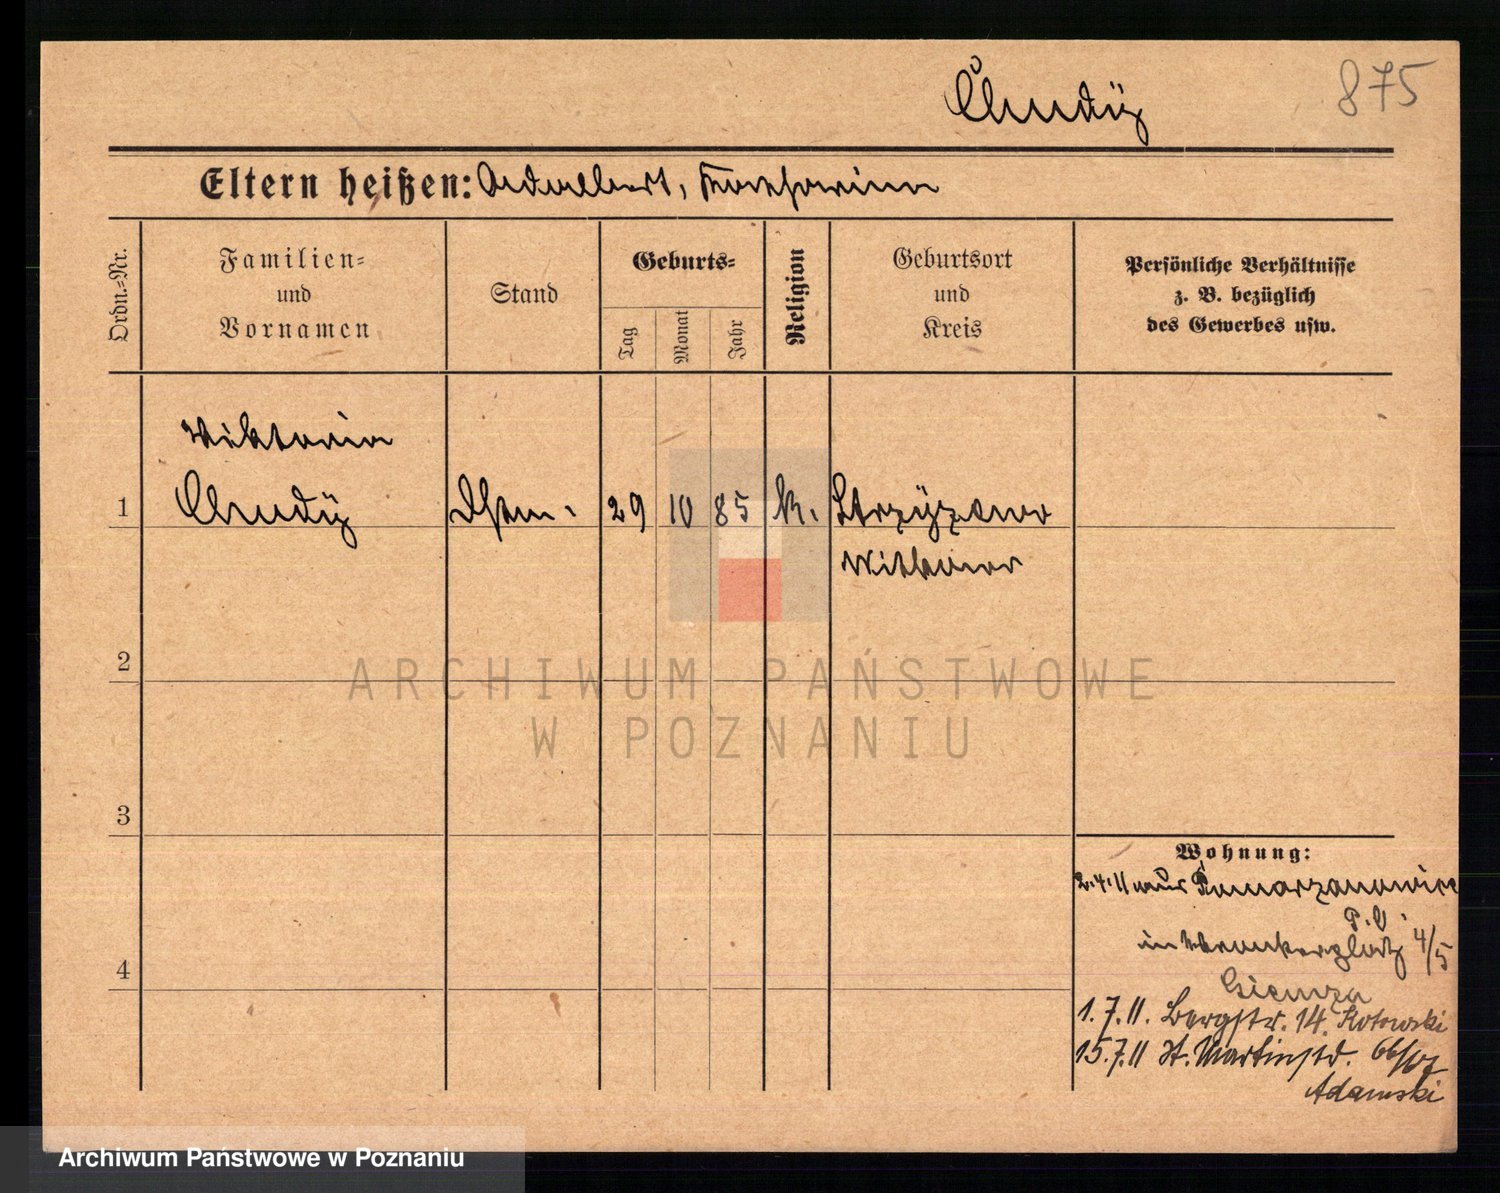 875
Chudy
Eltern heißen: Adalbert, Katharina
Ordn.=Nr.
Familien=
und
Vornamen
Stand
Geburts=
Tag
Monat
Jahr
Religion
Geburtsort
und
Kreis
Persönliche Verhältnisse
z. B. bezüglich
des Gewerbes usw.
Viktoria
1 Chudÿ 29 10 85 k. Strzÿzewo
Witkowo
2
3
4
Wohnung:
2.4.11 aus Pomarzanowice
P. O.
in Wronkerplatz 4/5
1.7.11. Bergstr. 14. Kotowski
15.7.11 St. Martinstr.
Adamski
ARCHIWUM PAŃSTWOWE
W POZNANIU
Archiwum Państwowe w Poznaniu